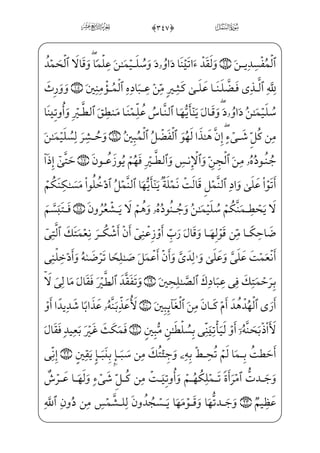 الجزء التاسع عشر ﴿٣٤٧﴾ سورة النمل
ٱلْمُفْسِدِينَ ۝ وَلَقَدْ ءَاتَيْنَا دَاوُۥدَ وَسُلَيْمَـٰنَ عِلْمًا ۖ وَقَالَا ٱلْحَمْدُ
لِلَّهِ ٱلَّذِى فَضَّلَنَا عَلَىٰ كَثِيرٍ مِّنْ عِبَادِهِ ٱلْمُؤْمِنِينَ ۝ وَوَرِثَ
سُلَيْمَـٰنُ دَاوُۥدَ ۖ وَقَالَ يَـٰٓأَيُّهَا ٱلنَّاسُ عُلِّمْنَا مَنطِقَ ٱلطَّيْرِ وَأُوتِينَا
مِن كُلِّ شَىْءٍ ۖ إِنَّ هَـٰذَا لَهُوَ ٱلْفَضْلُ ٱلْمُبِينُ ۝ وَحُشِرَ لِسُلَيْمَـٰنَ
جُنُودُهُۥ مِنَ ٱلْجِنِّ وَٱلْإِنسِ وَٱلطَّيْرِ فَهُمْ يُوزَعُونَ ۝ حَتَّىٰٓ إِذَآ
أَتَوْا۟ عَلَىٰ وَادِ ٱلنَّمْلِ قَالَتْ نَمْلَةٌ يَـٰٓأَيُّهَا ٱلنَّمْلُ ٱدْخُلُوا۟ مَسَـٰكِنَكُمْ
لَا يَحْطِمَنَّكُمْ سُلَيْمَـٰنُ وَجُنُودُهُۥ وَهُمْ لَا يَشْعُرُونَ ۝ فَتَبَسَّمَ
ضَاحِكًا مِّن قَوْلِهَا وَقَالَ رَبِّ أَوْزِعْنِىٓ أَنْ أَشْكُرَ نِعْمَتَكَ ٱلَّتِىٓ
أَنْعَمْتَ عَلَىَّ وَعَلَىٰ وَٰلِدَىَّ وَأَنْ أَعْمَلَ صَـٰلِحًا تَرْضَىٰهُ وَأَدْخِلْنِى
بِرَحْمَتِكَ فِى عِبَادِكَ ٱلصَّـٰلِحِينَ ۝ وَتَفَقَّدَ ٱلطَّيْرَ فَقَالَ مَا لِىَ لَآ
أَرَى ٱلْهُدْهُدَ أَمْ كَانَ مِنَ ٱلْغَآئِبِينَ ۝ لَأُعَذِّبَنَّهُۥ عَذَابًا شَدِيدًا أَوْ
لَأَا۟ذْبَحَنَّهُۥٓ أَوْ لَيَأْتِيَنِّى بِسُلْطَـٰنٍ مُّبِينٍ ۝ فَمَكَثَ غَيْرَ بَعِيدٍ فَقَالَ
أَحَطتُ بِمَا لَمْ تُحِطْ بِهِۦ وَجِئْتُكَ مِن سَبَإٍۭ بِنَبَإٍ يَقِينٍ ۝ إِنِّى
وَجَدتُّ ٱمْرَأَةً تَمْلِكُهُمْ وَأُوتِيَتْ مِن كُلِّ شَىْءٍ وَلَهَا عَرْشٌ
عَظِيمٌ ۝ وَجَدتُّهَا وَقَوْمَهَا يَسْجُدُونَ لِلشَّمْسِ مِن دُونِ ٱللَّهِ